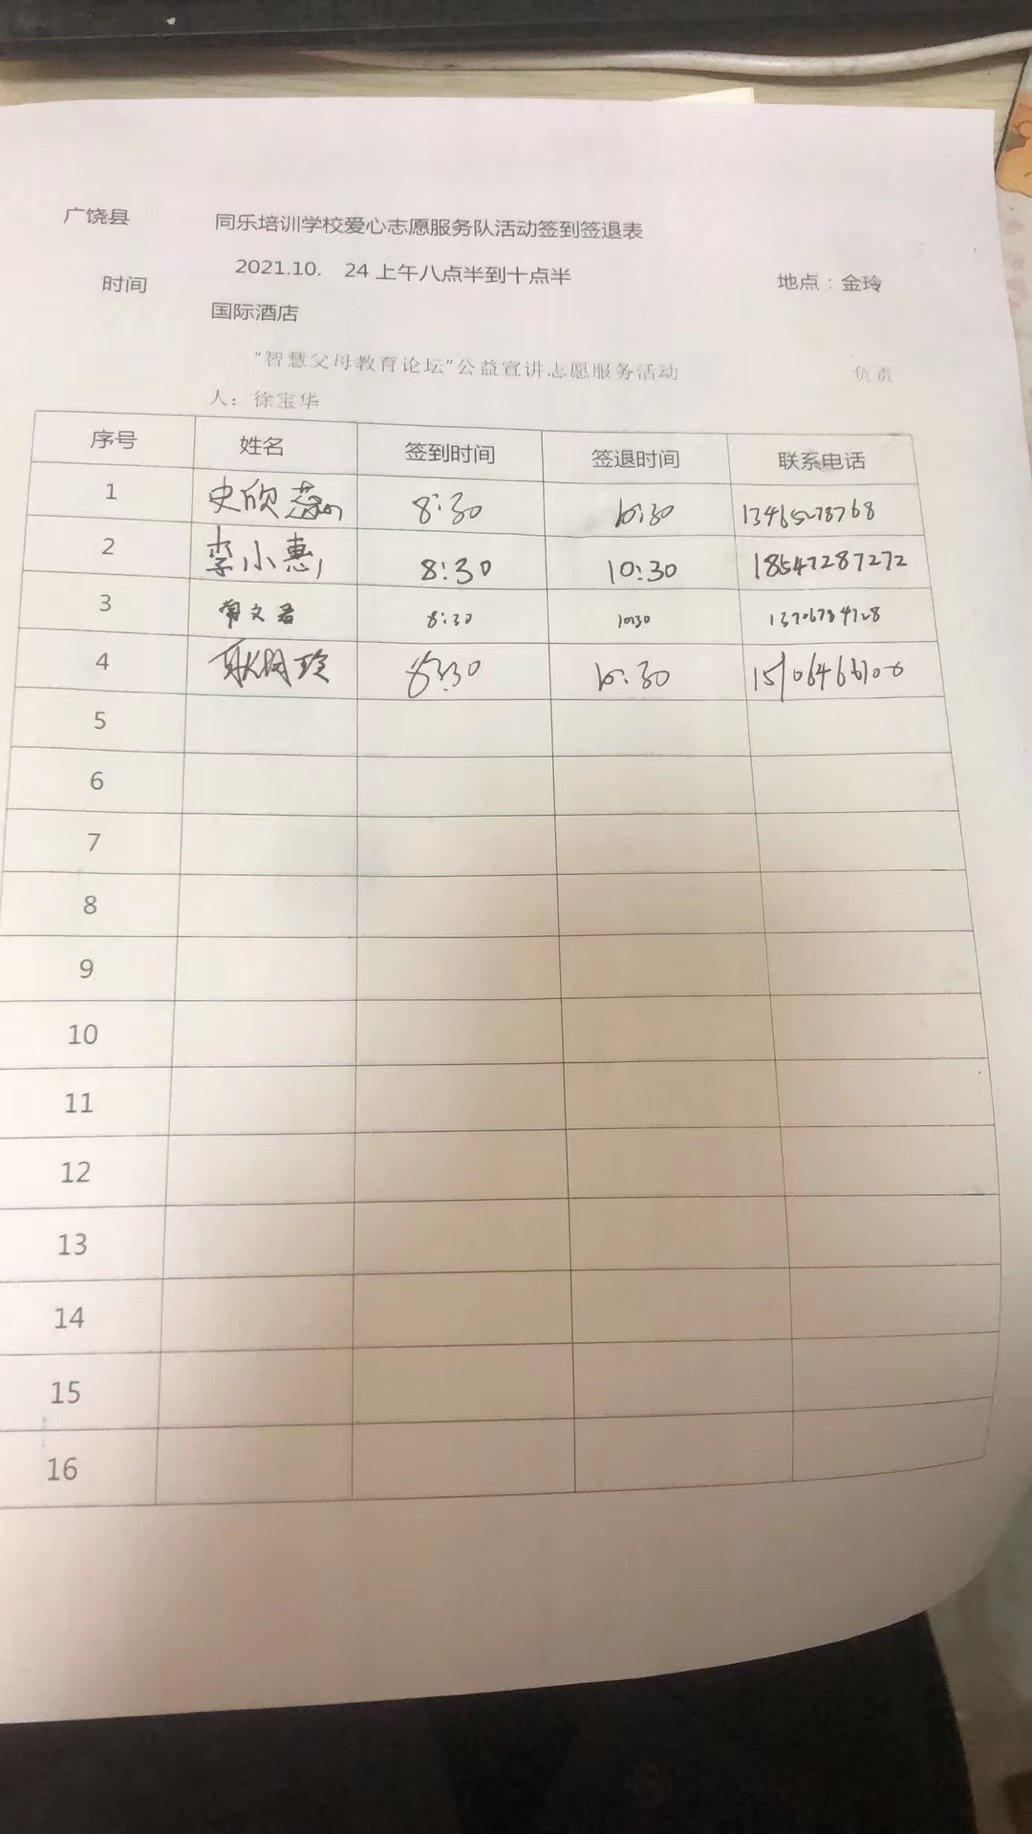 广饶县 同乐培训学校爱心志愿服务队活动签到签退表
时间 2021.10. 24 上午八点半到十点半 地点：金玲
国际酒店
"智慧父母教育论坛"公益宣讲志愿服务活动 负责
人：徐宝华
序号 姓名 签到时间 签退时间 联系电话
1 史欣蕊 8:30 10:30
2 李小惠 8:30 10:30 18547287272
3 常文君 8:30 10:30
4 8:30 10:30
5
6
7
8
9
10
11
12
13
14
15
16